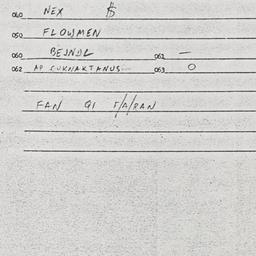 040 NEX $
050 FLOWMEN
060 BEJNDL 061 —
062 AP CUKNAKTANUS 063 O
FAN GI F/A/RAN